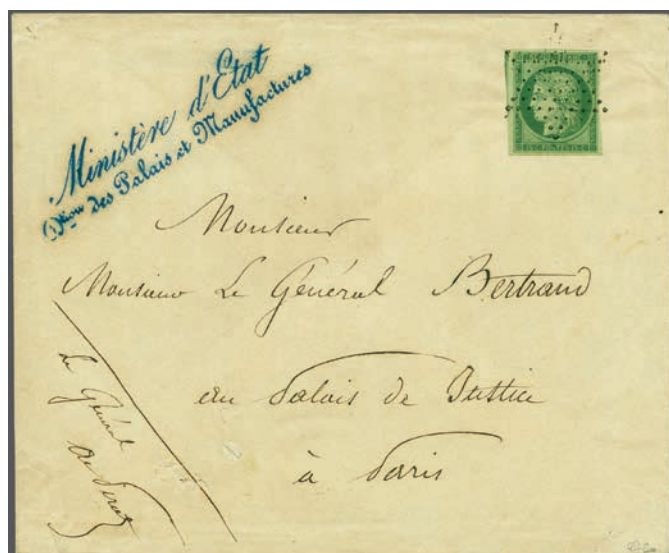 Ministère d'Etat
Don des Palais et Manufactures
Monsieur
Monsieur Le Général Bertrand
au Palais de Justice
à Paris
Le Général